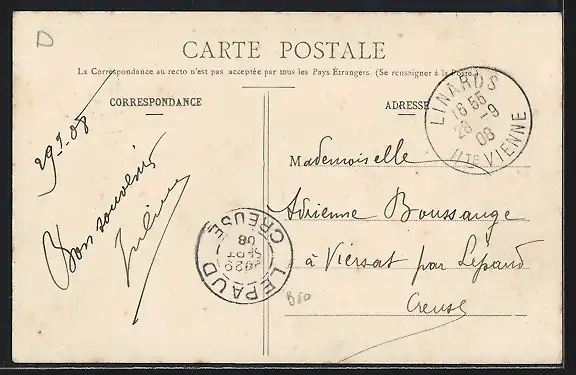 D
CARTE POSTALE
La Correspondance au recto n'est pas acceptée par tous les Pays Étrangers. (Se renseigner à la Poste.)
CORRESPONDANCE
29.9.08
Bon souvenir
ADRESSE
Mademoiselle
Adrienne Boussange
à Viersat par Lepaud
Creuse
LINARDS
16 55
28 - 9
08
Hte VIENNE
LEPAUD
CREUSE
29
SEPT
08
B50